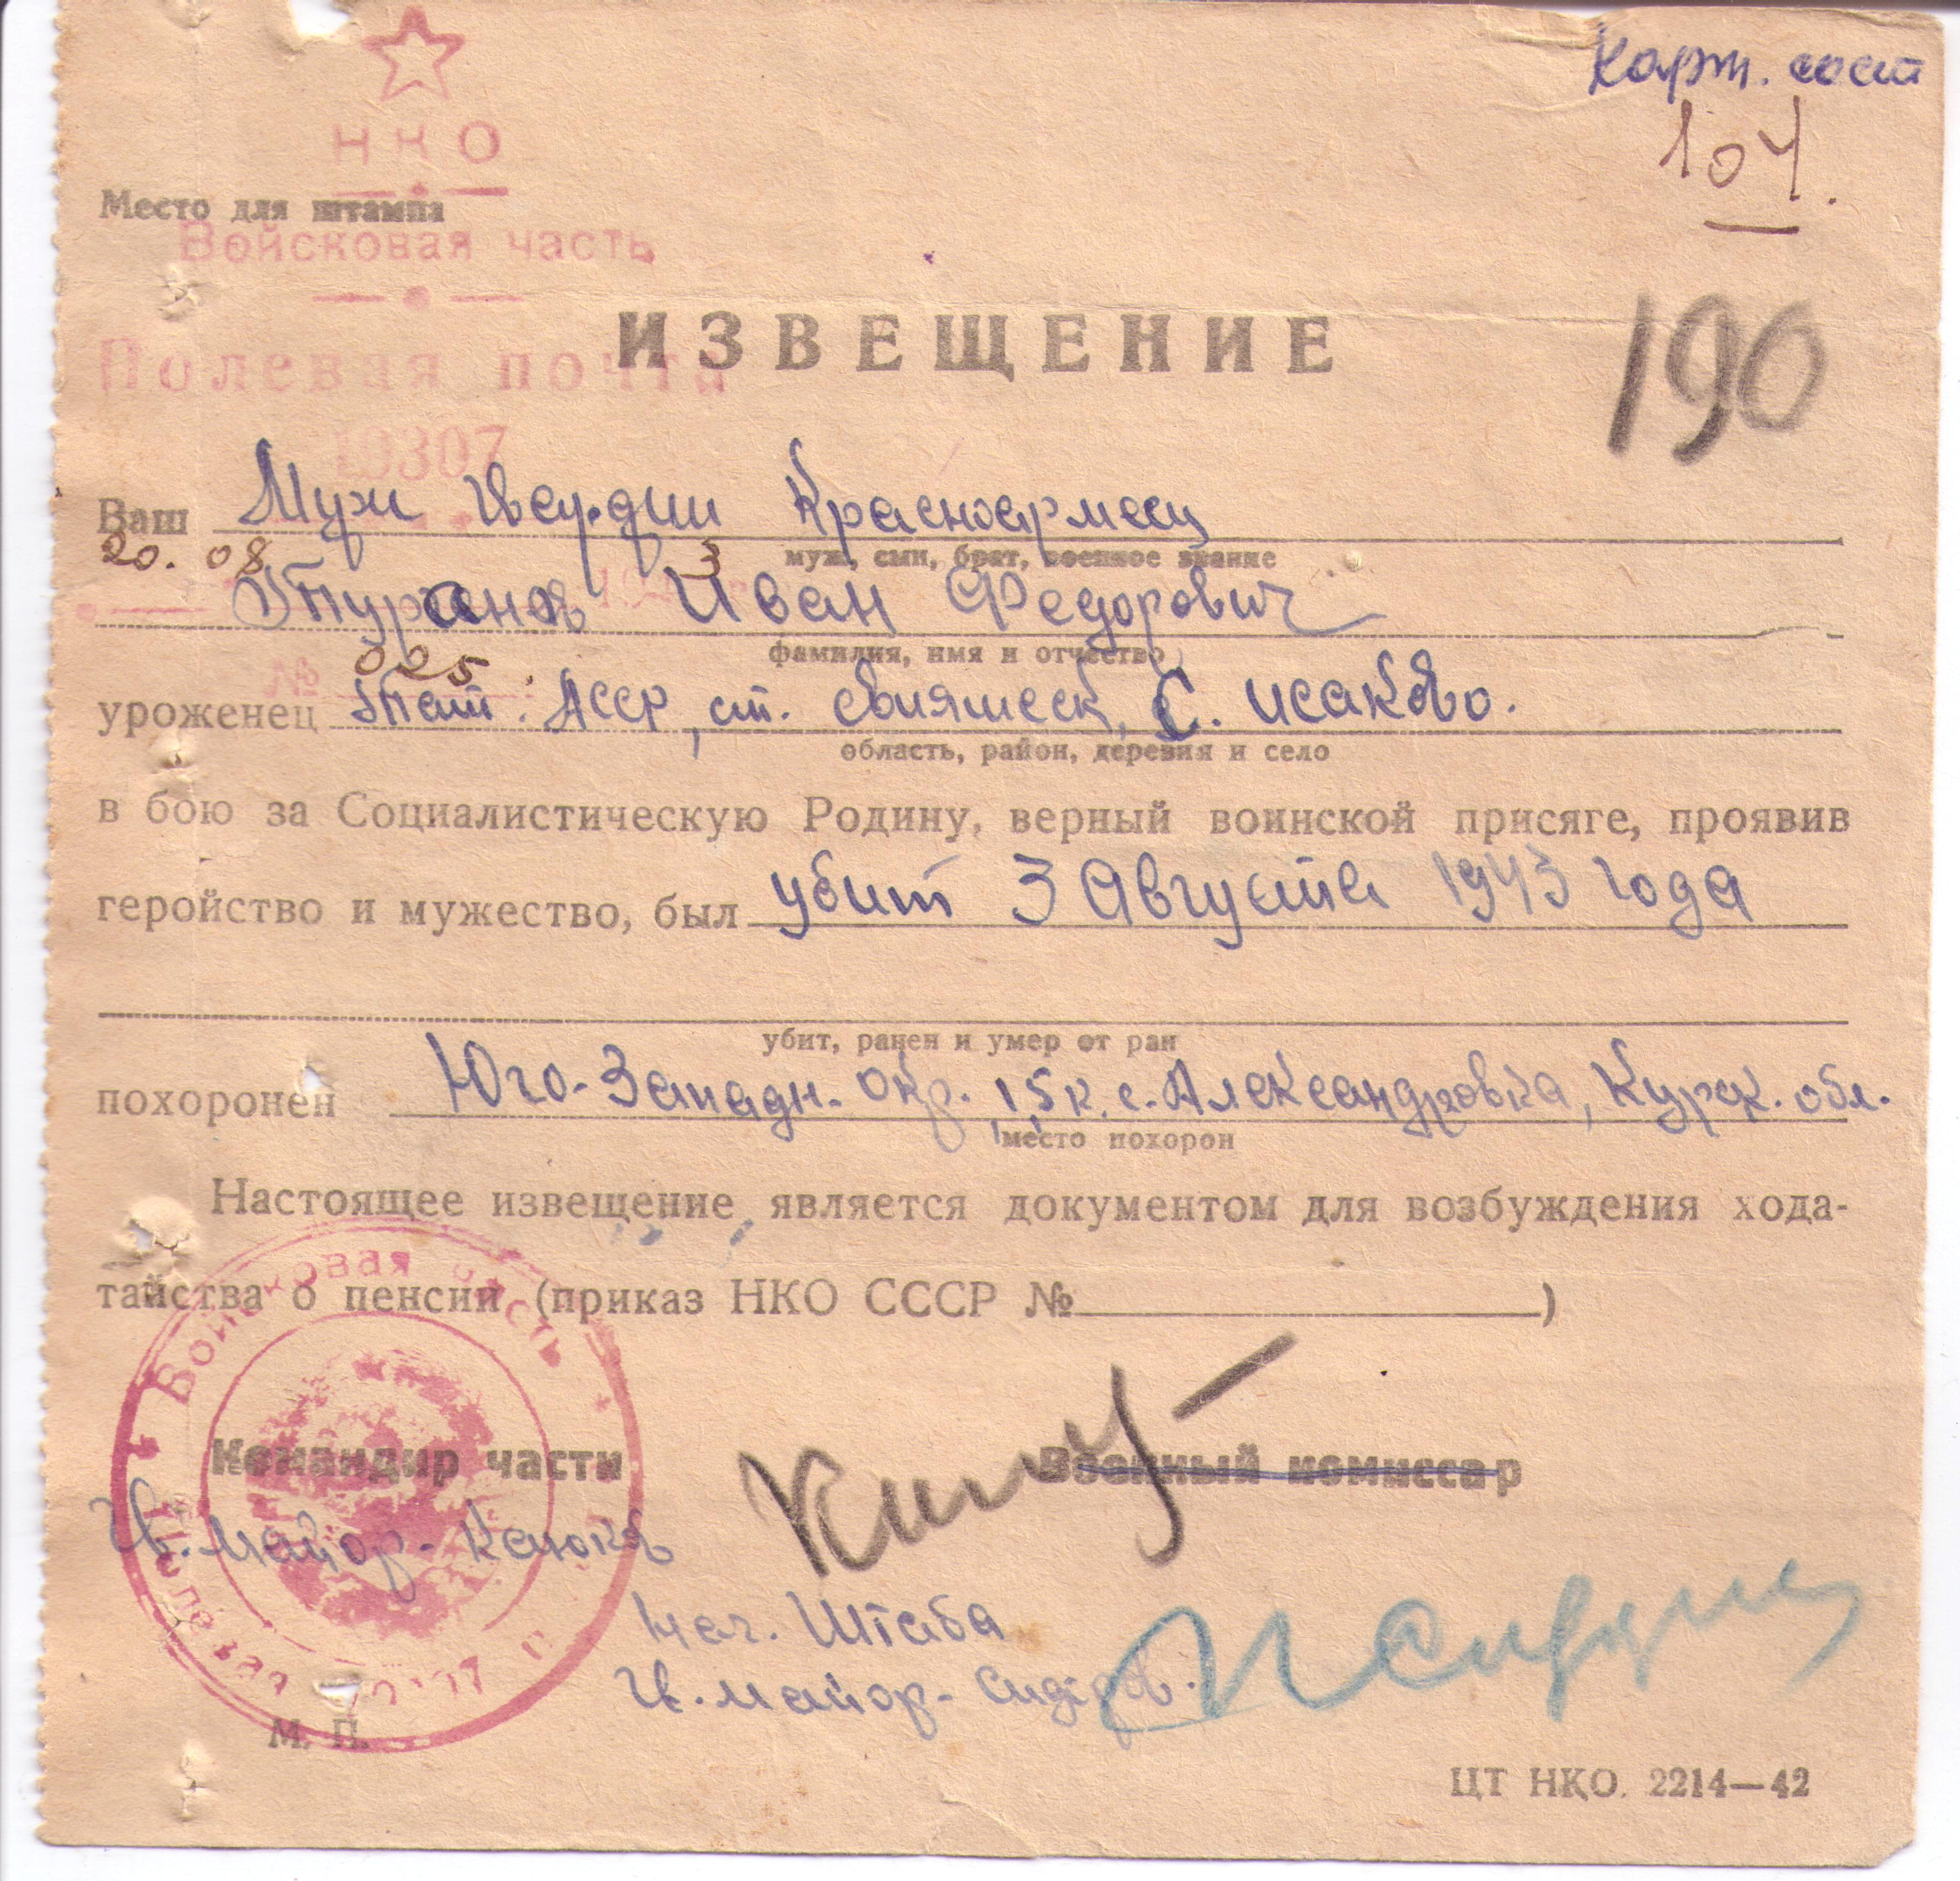 Карт. сост
104.
НКО
Место для штампа
Войсковая часть
ИЗВЕЩЕНИЕ
190
Полевая почта
10307
Ваш Муж Гвардии Красноармеец
муж, сын, брат, военное звание
20. 08 3
Турганов Иван Федорович
фамилия, имя и отчество
№ 025
уроженец Тат. АССР, ст. Свияжск, с. Исаково.
область, район, деревня и село
в бою за Социалистическую Родину, верный воинской присяге, проявив
геройство и мужество, был убит 3 Августа 1943 года
убит, ранен и умер от ран
похоронен Юго-Западн. окр. 1,5 к. с. Александровка, Курск. обл.
место похорон
Настоящее извещение является документом для возбуждения хода-
тайства о пенсии (приказ НКО СССР № )
Войсковая часть
Командир части Военный комиссар
Гв. майор-
Нач. Штаба
Гв. майор- Сидоров.
Полевая почта
М. П.
ЦТ НКО. 2214—42